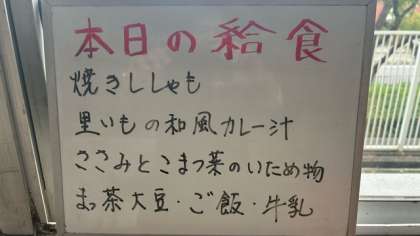 本日の給食
焼きししゃも
里いもの和風カレー汁
ささみとこまつ菜のいため物
まっ茶大豆・ご飯・牛乳